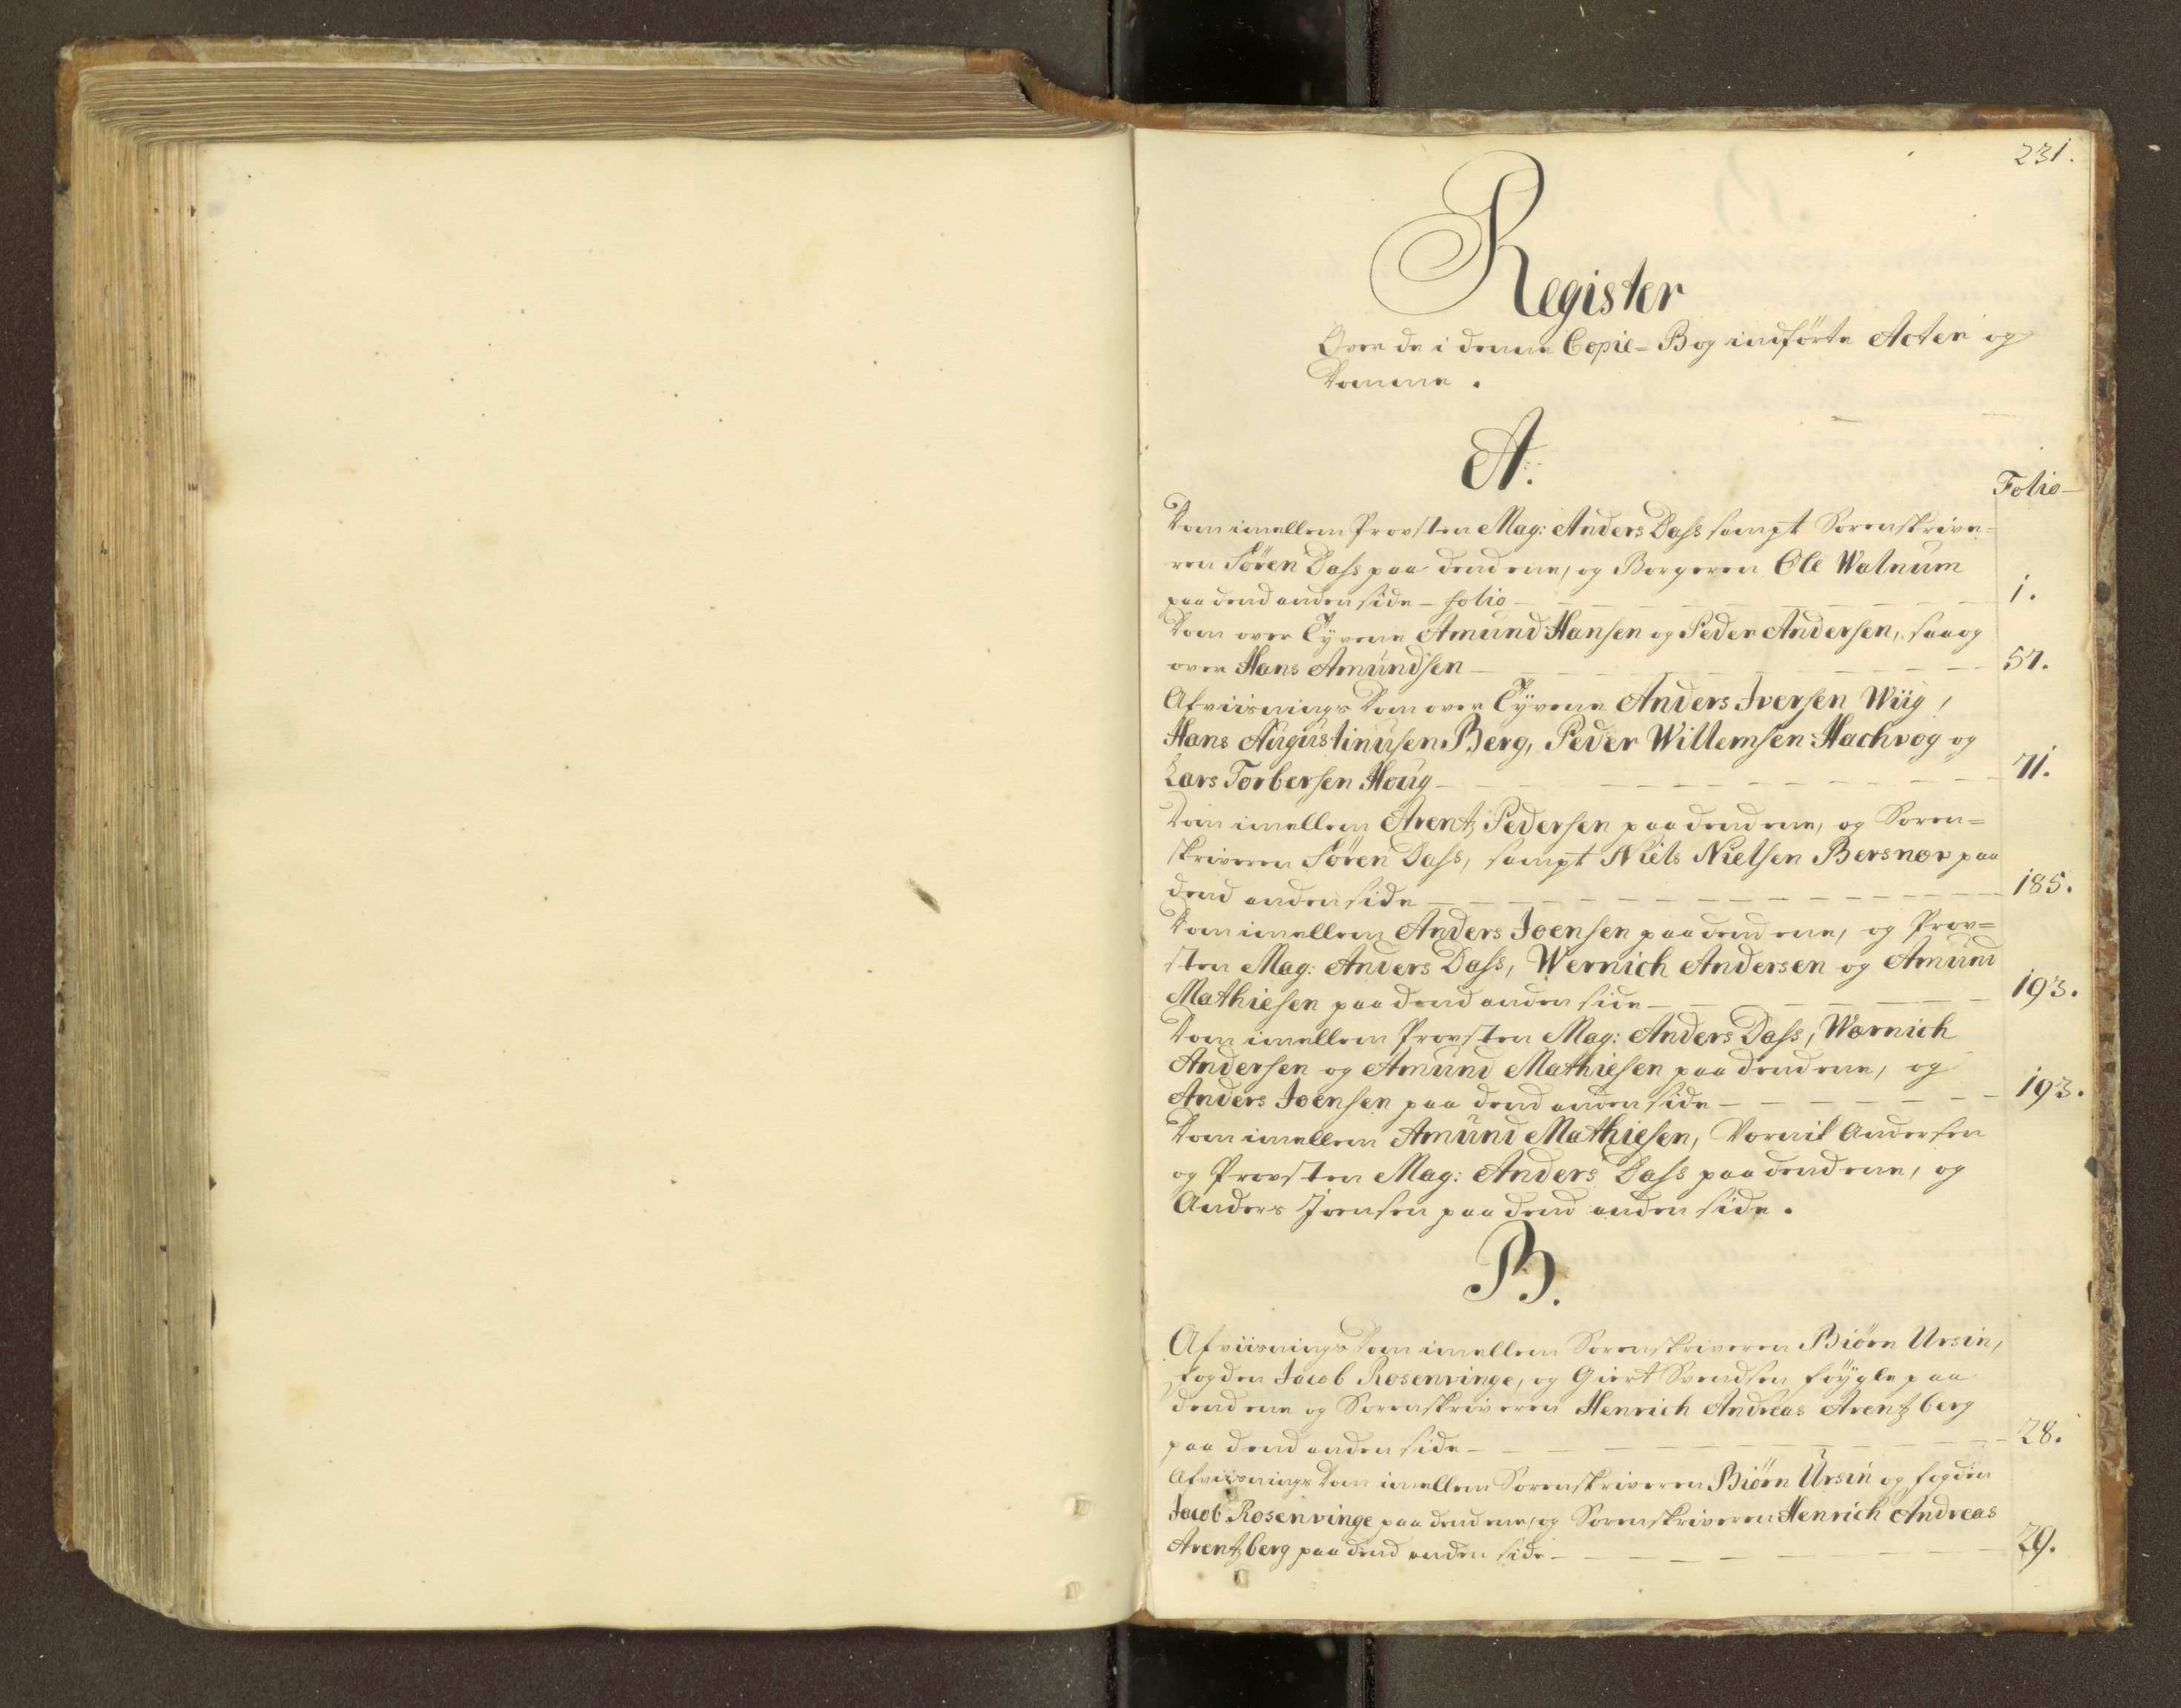 231.
Register
Over de i denne Copie-Bog indførte Acter og
Domme.
A.
Folio
Dom imellem Provsten Mag: Anders Dass sampt Sorenskrive=
ren Søren Dass paa dend ene, og Borgeren Ole Walnum
paa dend anden side - folio 1.
Dom over Tyvene Amund Hansen og Peder Andersen, saa og
over Hans Amundsen 57.
Afviisnings Dom over Tyvene Anders Iversen Wiig,
Hans Augustinusen Berg, Peder Willemsen Hachvog og
Lars Torbersen Houg 71.
Dom imellem Arentz Pedersen paa dend ene, og Soren=
skriveren Søren Dass, sampt Niels Nielsen Bersnor paa
dend anden side 185.
Dom imellem Anders Joensen paa dend ene, og Prov=
sten Mag: Anders Dass, Wernich Andersen og Amund
Mathiesen paa dend anden side 193.
Dom imellem Provsten Mag: Anders Dass, Wærnich
Andersen og Amund Mathiesen paa dend ene, og
Anders Joensen paa dend anden side 193.
Dom imellem Amund Mathiesen, Vernik Andersen
og Provsten Mag: Anders Dass paa dend ene, og
Anders Joensen paa dend anden side.
B.
Afviisnings Dom imellem Sorenskriveren Biørn Ursin,
fogden Jacob Rosenvinge, og Giert Svendsen Føygle paa
dend ene og Sorenskriveren Henrich Andreas Arentz berg
paa dend anden side 28.
Afviisnings Dom imellem Sorenskriveren Biørn Ursin og fogden
Jacob Rosenvinge paa dend ene, og Sorenskriveren Henrich Andreas
Arentzberg paa dend anden side 29.